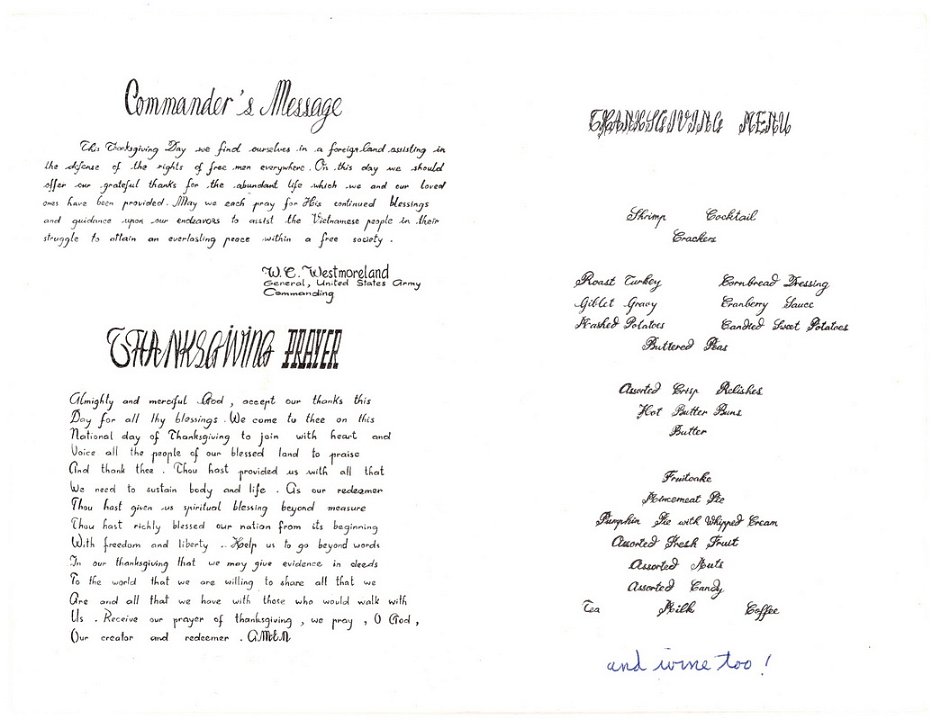 Commander's Message
This Thanksgiving Day we find ourselves in a foreign land assisting in
the defense of the rights of free men everywhere. On this day we should
offer our grateful thanks for the abundant life which we and our loved
ones have been provided. May we each pray for His continued blessings
and guidance upon our endeavors to assist the Vietnamese people in their
struggle to attain an everlasting peace within a free society.
W.C. Westmoreland
General, United States Army
Commanding
THANKSGIVING PRAYER
Almighty and merciful God, accept our thanks this
Day for all thy blessings. We come to thee on this
National day of Thanksgiving to join with heart and
Voice all the people of our blessed land to praise
And thank thee. Thou hast provided us with all that
We need to sustain body and life. As our redeemer
Thou hast given us spiritual blessing beyond measure
Thou hast richly blessed our nation from its beginning
With freedom and liberty .. Help us to go beyond words
In our thanksgiving that we may give evidence in deeds
To the world that we are willing to share all that we
Are and all that we have with those who would walk with
Us. Receive our prayer of thanksgiving, we pray, O God,
Our creator and redeemer. AMEN.
THANKSGIVING MENU
Shrimp Cocktail
Crackers
Roast Turkey Cornbread Dressing
Giblet Gravy Cranberry Sauce
Mashed Potatoes Candied Sweet Potatoes
Buttered Peas
Assorted Crisp Relishes
Hot Butter Buns
Butter
Fruitcake
Mincemeat Pie
Pumpkin Pie with Whipped Cream
Assorted Fresh Fruit
Assorted Nuts
Assorted Candy
Tea Milk Coffee
and wine too!